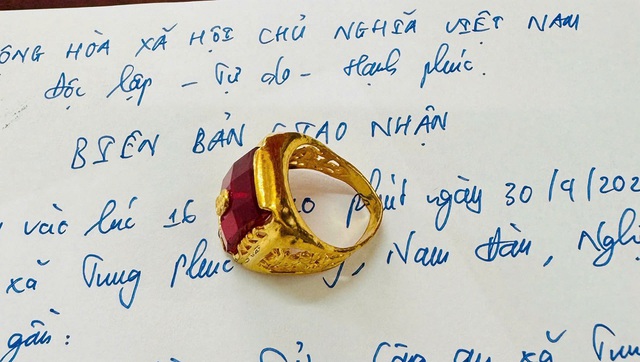 ỘNG HÒA XÃ HỘI CHỦ NGHĨA VIỆT NAM
Độc lập - Tự do - Hạnh phúc.
BIÊN BẢN GIAO NHẬN
vào lúc 16 phút ngày 30/4/202
xã Trung Phúc Nam Đàn, Nghệ
gồm:
Công an xã Trung